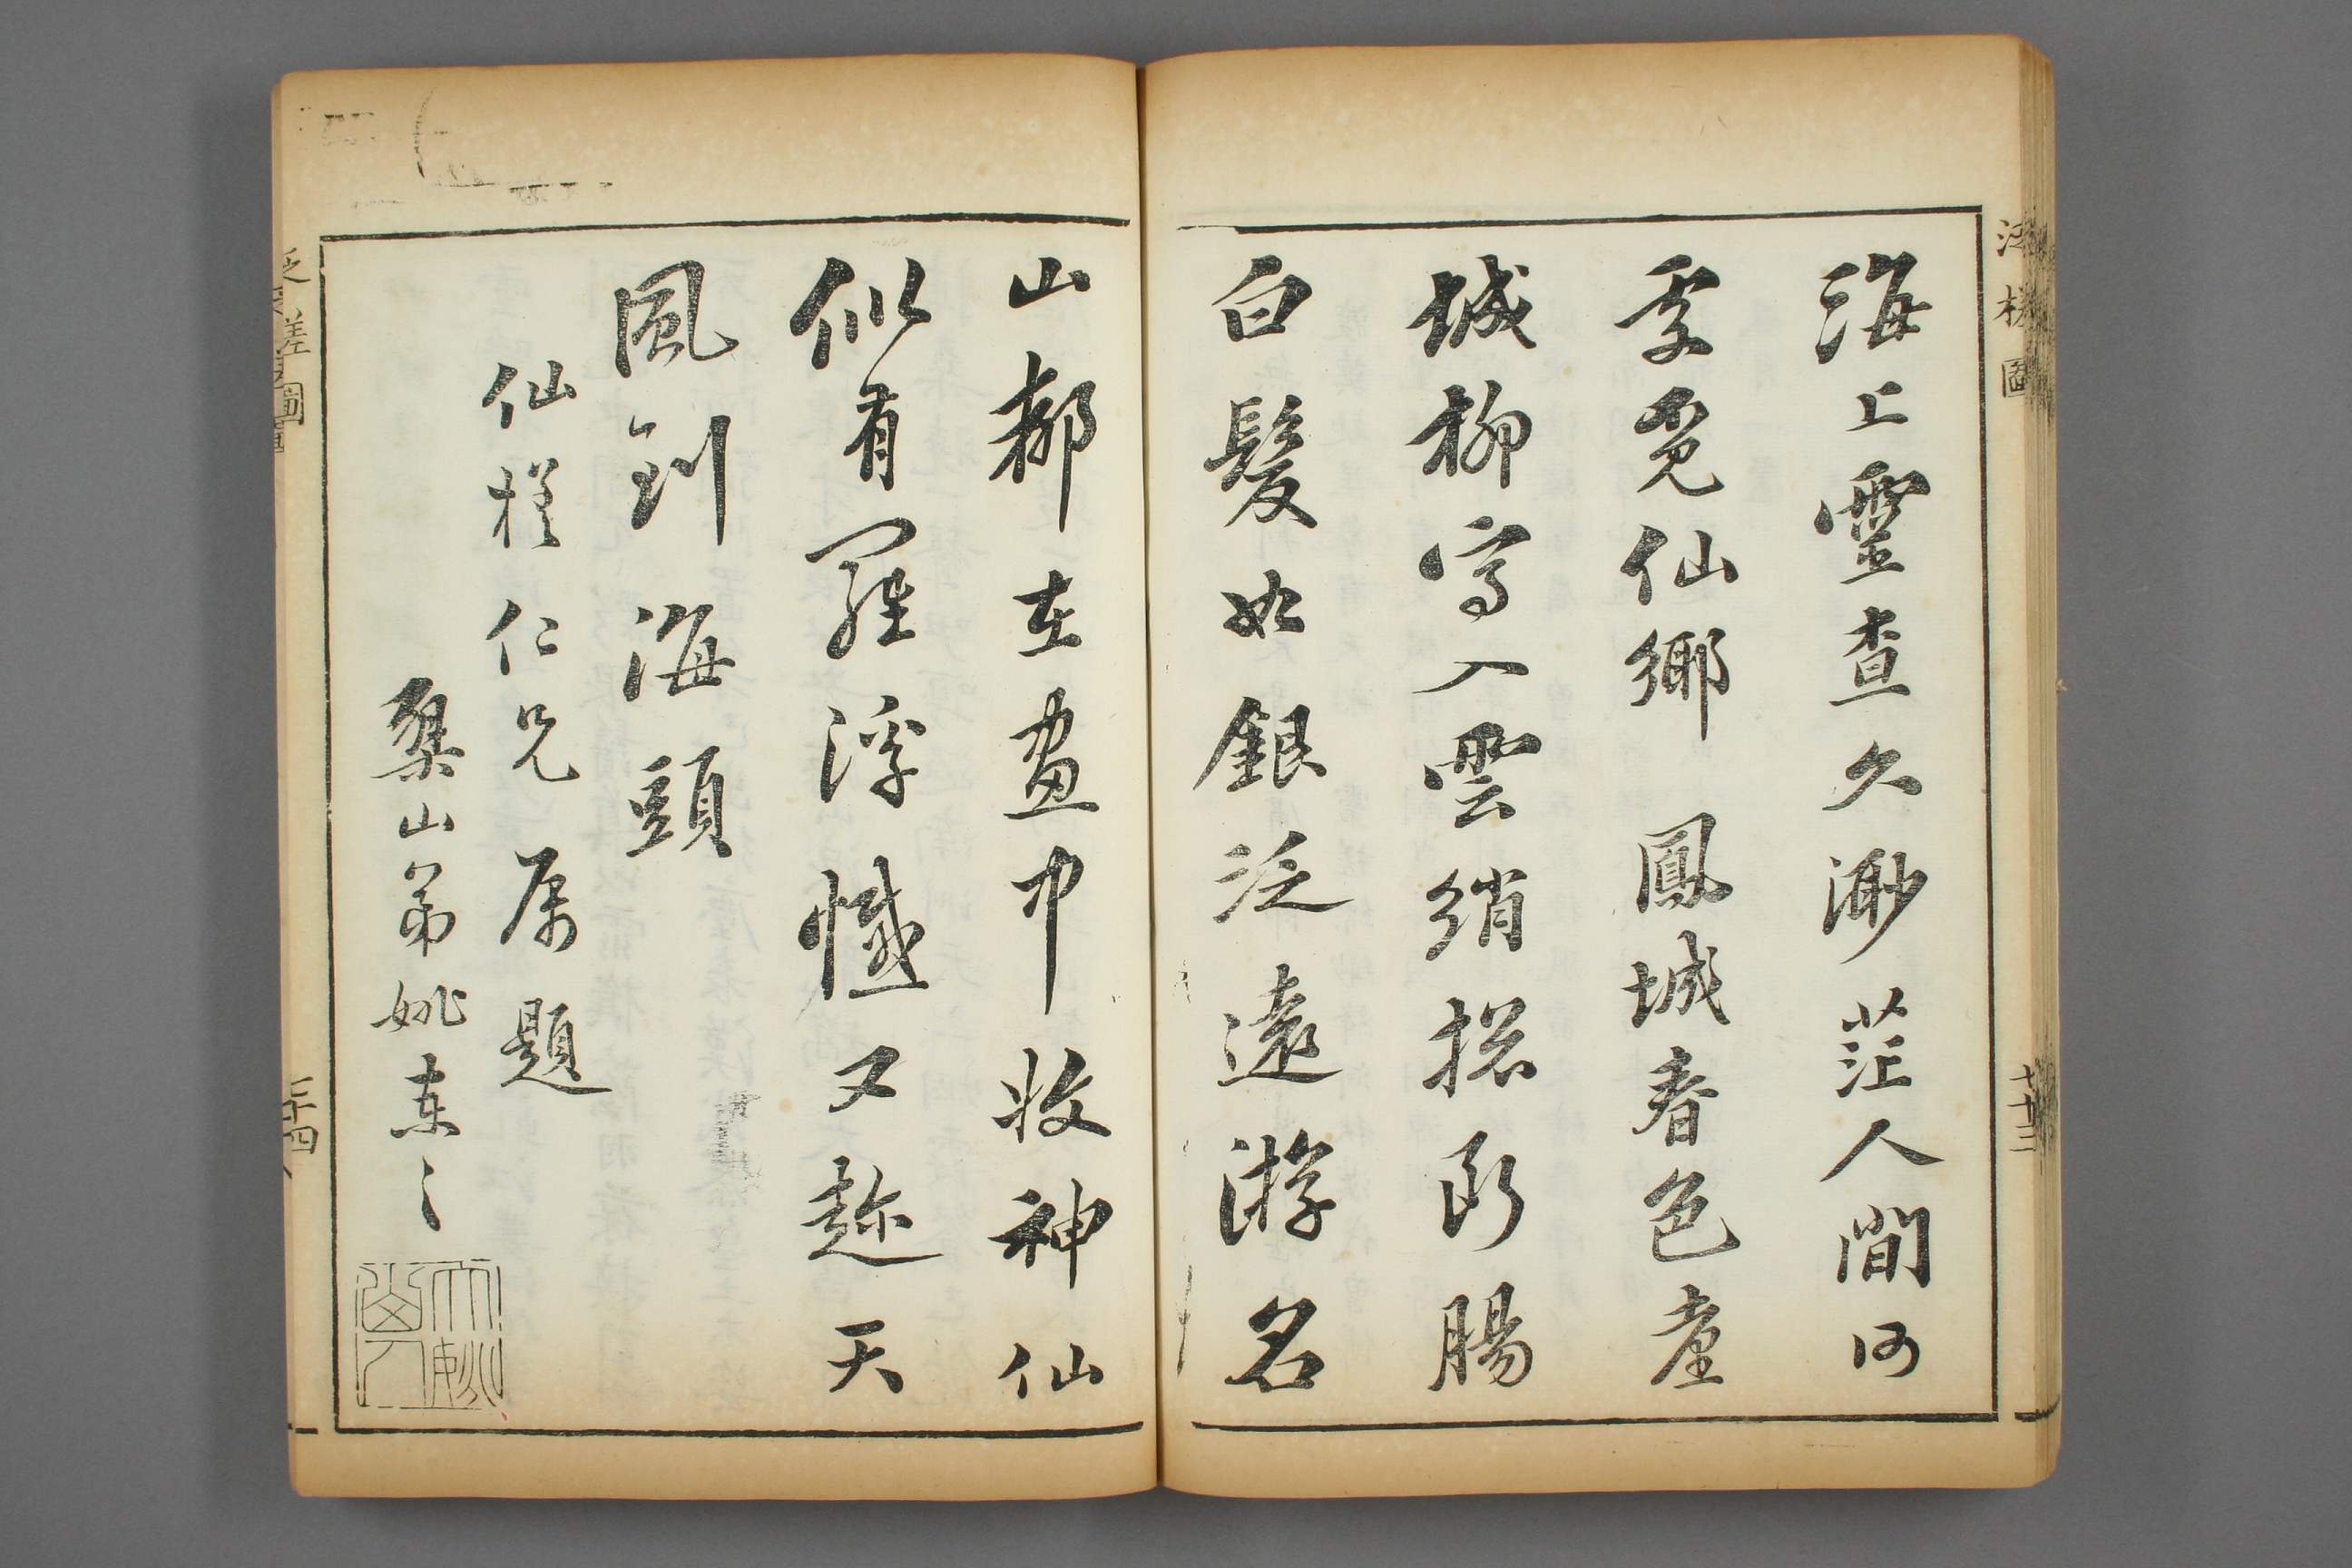 泛槎圖
七十三
海上靈查久渺茫人間何
處覓仙鄉 鳳城春色臺
城柳寫入雲綃揔斷腸
白髮如銀泛遠游名
山都在畫中收神仙
似有羅浮憾又趂天
風到海頭
仙槎仁兄屬題
山弟姚東之